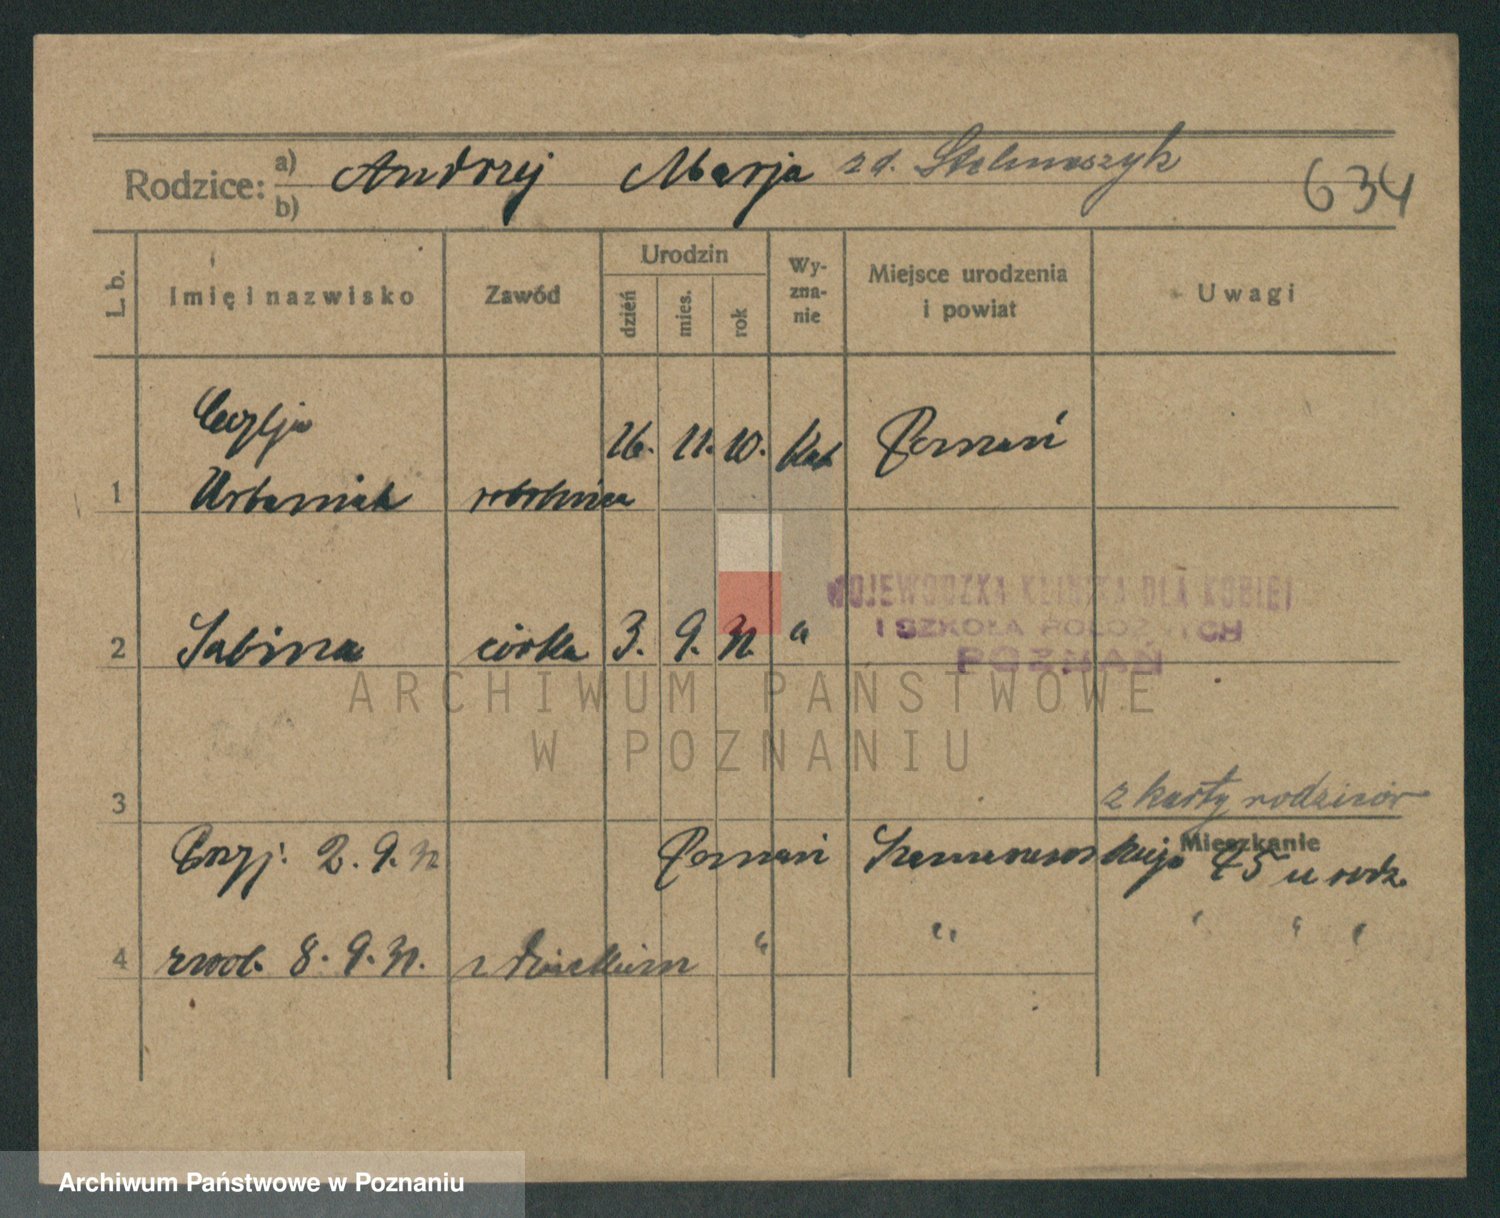 Rodzice: a) Andrzej Marja z d. Stelmaszyk 634
b)
L. b. Imię i nazwisko Zawód Urodzin dzień mies. rok Wyznanie Miejsce urodzenia i powiat Uwagi
Cecylja 26. 11. 10. Kat Poznań
1 Urbaniak robotnica
WOJEWÓDZKA KLINIKA DLA KOBIET
I SZKOŁA POŁOŻNYCH
2 Sabina córka 3. 9. 31. "
POZNAŃ
ARCHIWUM PAŃSTWOWE
W POZNANIU
3 z karty rodziców
Mieszkanie
Przyj. 2. 9. 31 Poznań 45 u rodz.
4 8. 9. 31. z dzieckiem " " " " "
Archiwum Państwowe w Poznaniu